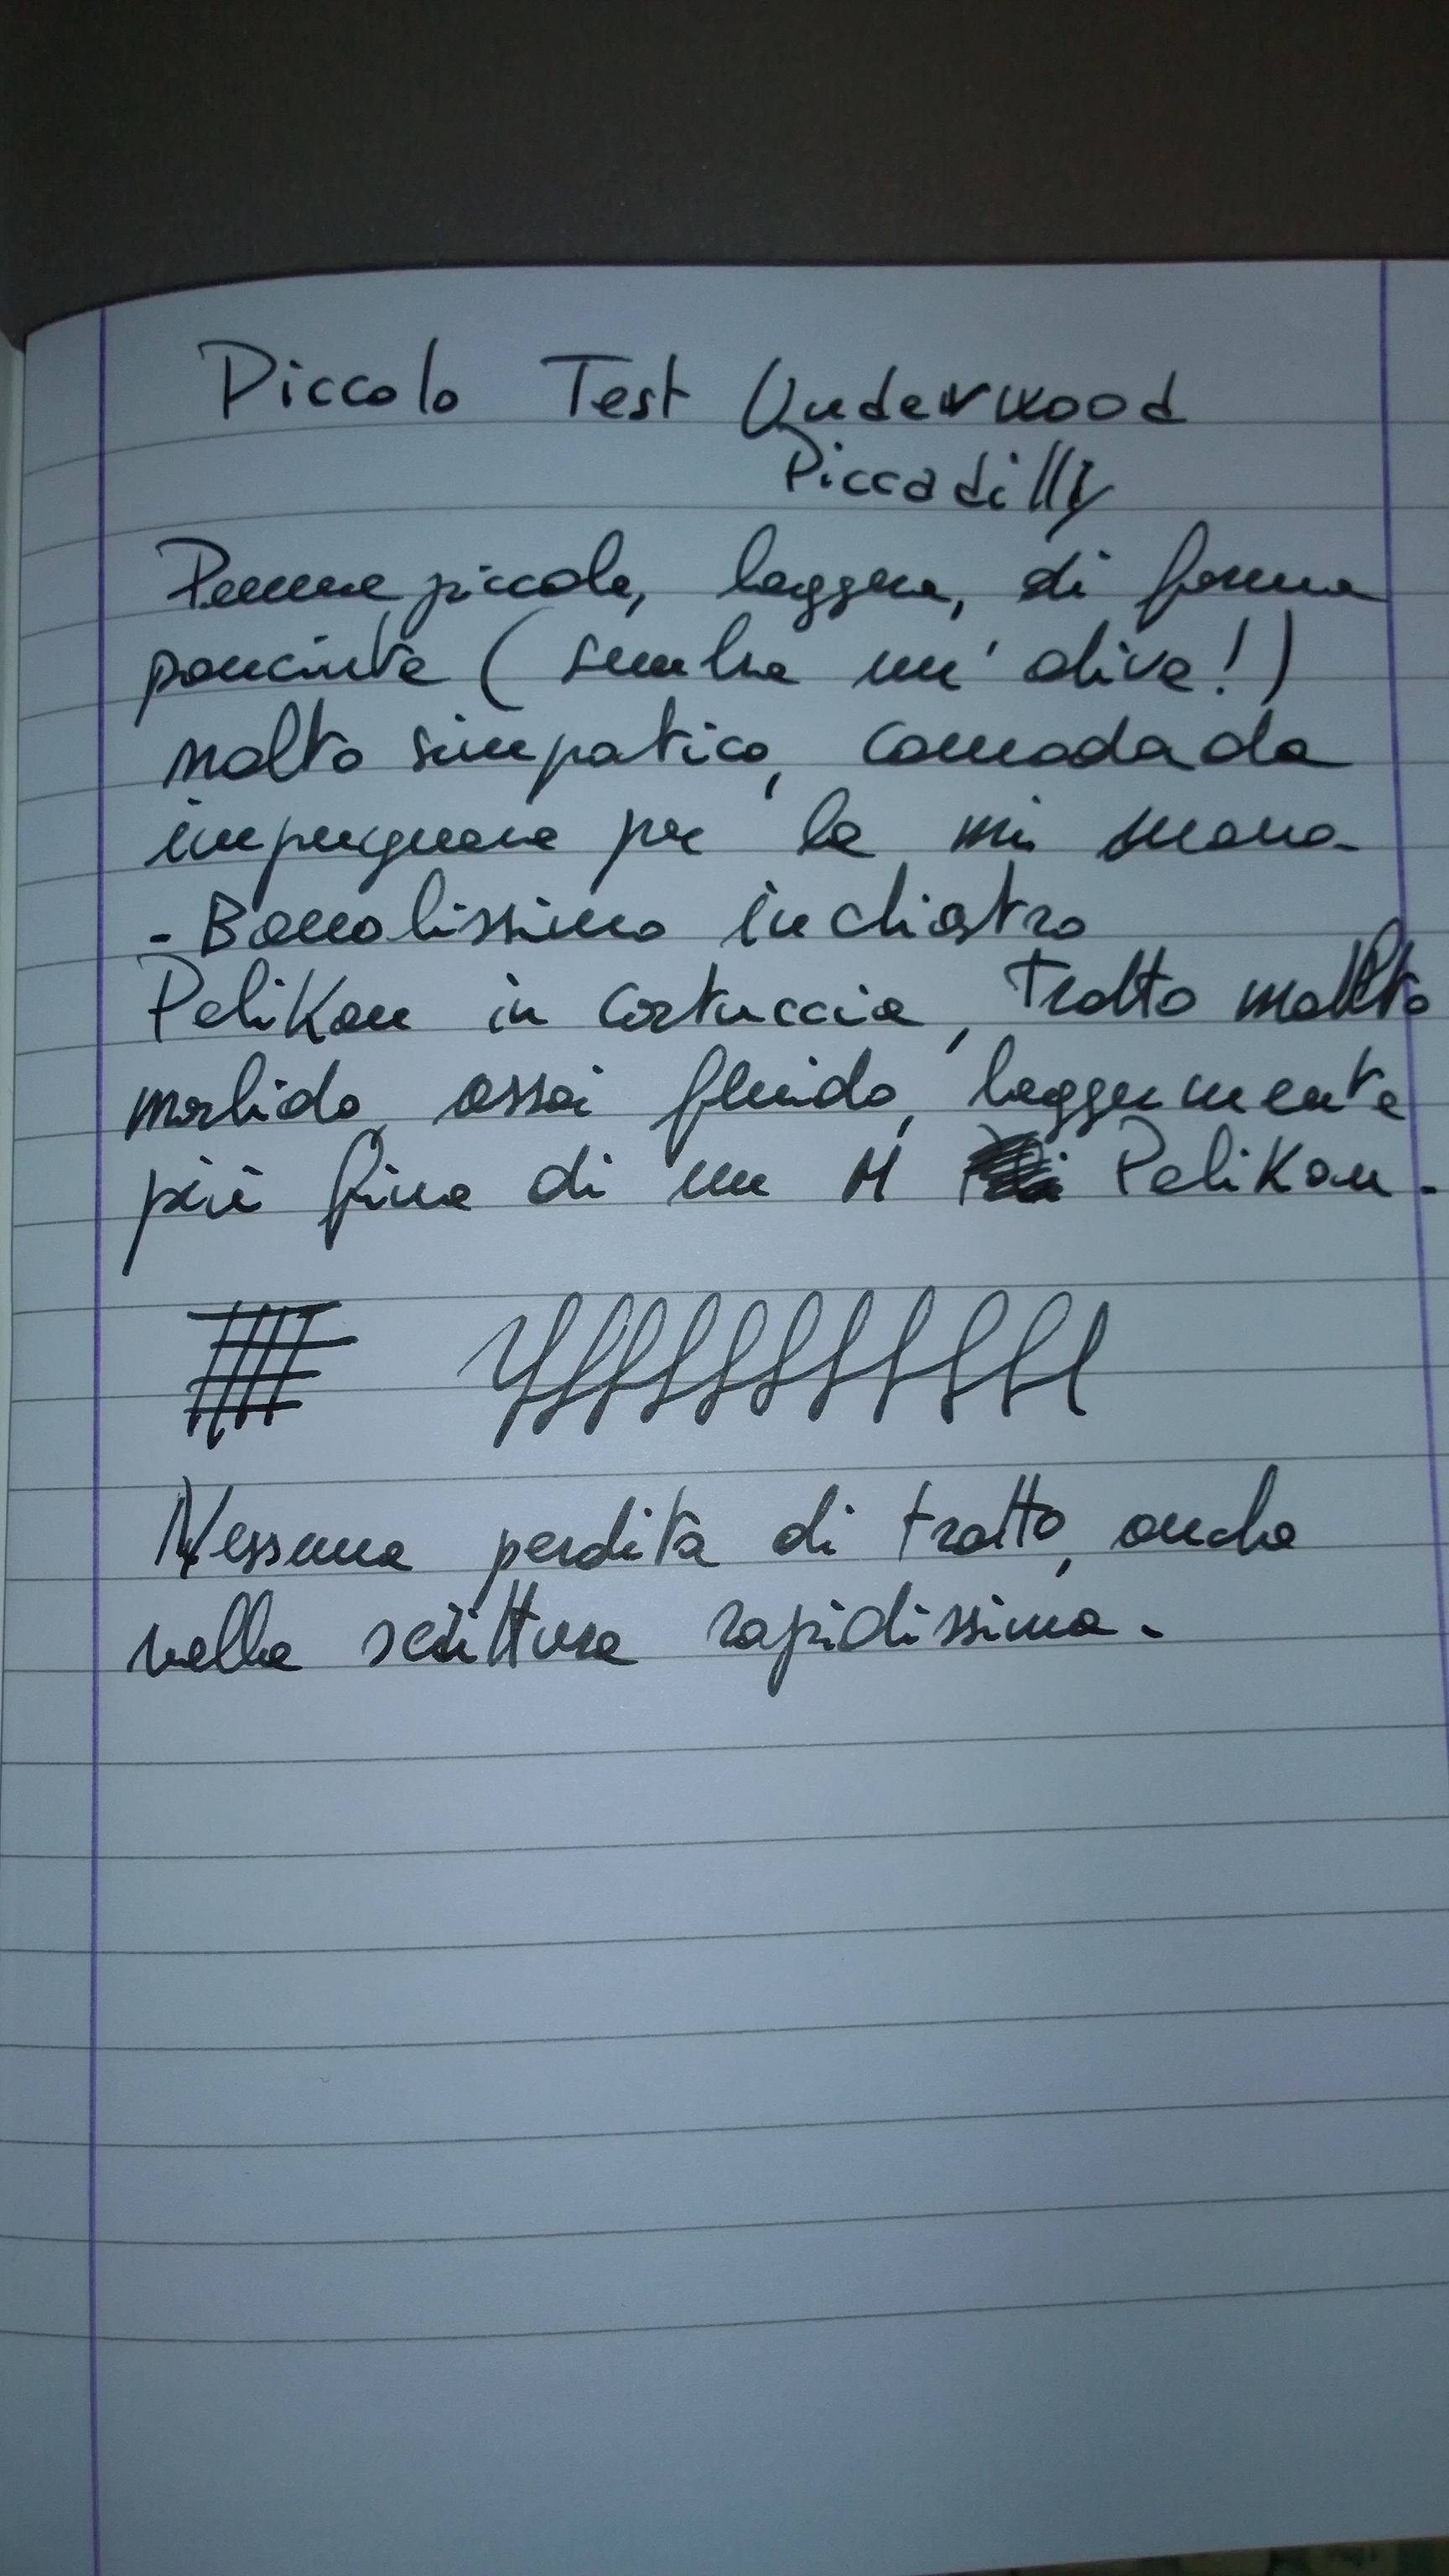 Piccolo Test Underwood
Piccadilly
Penna piccola, leggera, di forma
panciuta (sembra un'oliva!)
molto simpatico, comoda da
impugnare per la mi mano.
- Banalissimo inchiostro
Pelikan in cartuccia, Tratto molto
morbido, assai fluido, leggermente
più fine di un M Pelikan.
Nessuna perdita di tratto, anche
nella scrittura rapidissima.